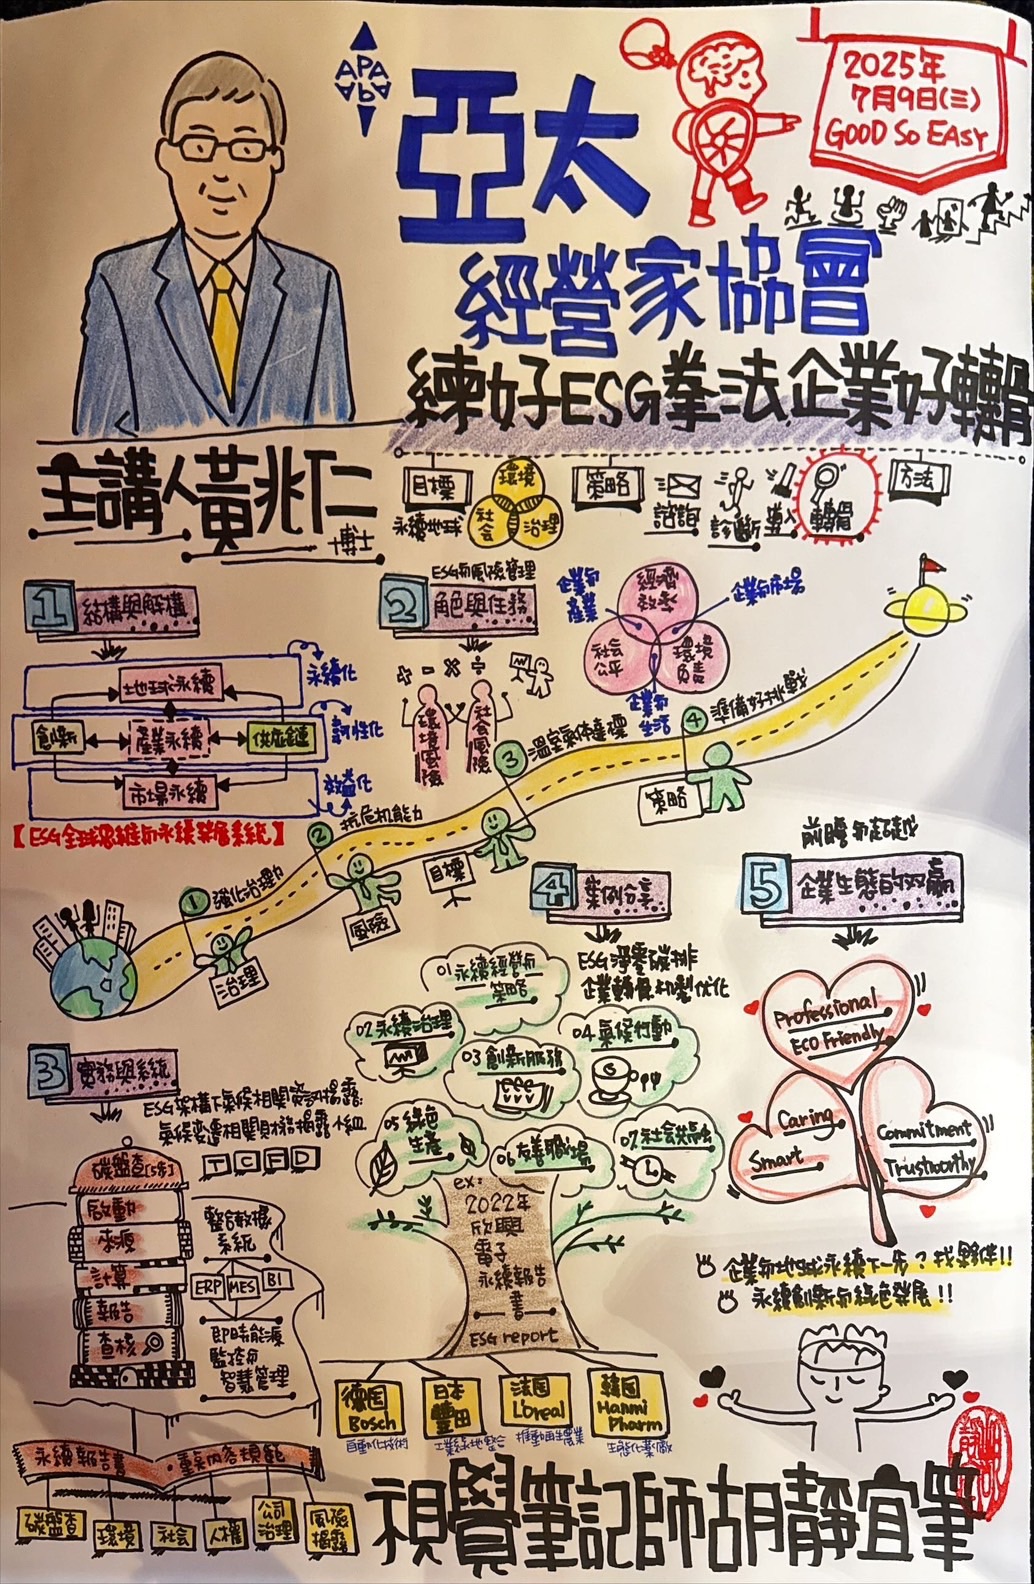 APA
2025年
7月9日(三)
GOOD SO EASY
亞太
經營家協會
練好ESG拳法企業好轉骨
主講人黃兆仁
博士
目標
永續地球
環境
社會
治理
策略
諮詢
診斷
導入
轉骨
方法
1 結構與解構
地球永續
創新
產業永續
供應鏈
市場永續
永續化
韌性化
效益化
【ESG全球思維与永續發展系統】
ESG与風險管理
2 角色與任務
環境風險
社會風險
企業与產業
經濟效率
企業与市場
社會公平
環境負責
企業与生活
1 強化治理力
治理
2 抗危機能力
風險
3 溫室氣体達標
目標
4 準備好挑戰
策略
3 實務與系統
ESG架構下氣候相關資訊揭露:
氣候變遷相關財務揭露小組
TCFD
碳盤查[5步]
啟動
來源
計算
報告
查核
整合數據
系統
ERP
MES
BI
即時能源
監控与
智慧管理
永續報告書·重大內容規範
碳盤查
環境
社會
人權
公司治理
風險揭露
4 案例分享
ESG淨零碳排
企業轉骨机制优化
01 永續經營与策略
02 永續治理
03 創新服務
04 氣候行動
05 綠色生產
06 友善職場
07 社會共融
ex:
2022年
欣興
電子
永續報告
書
ESG report
德国
Bosch
自動化技術
日本
豐田
工業綠地整合
法国
L'oreal
推動再生農業
韓国
Hanmi
Pharm
生態化藥廠
前瞻与超越
5 企業生態的双贏
Professional
ECO Friendly
Caring
Smart
Commitment
Trustworthy
企業与地球永續下一步?找夥伴!!
永續創新与綠色發展!!
視覺筆記師胡靜宜筆